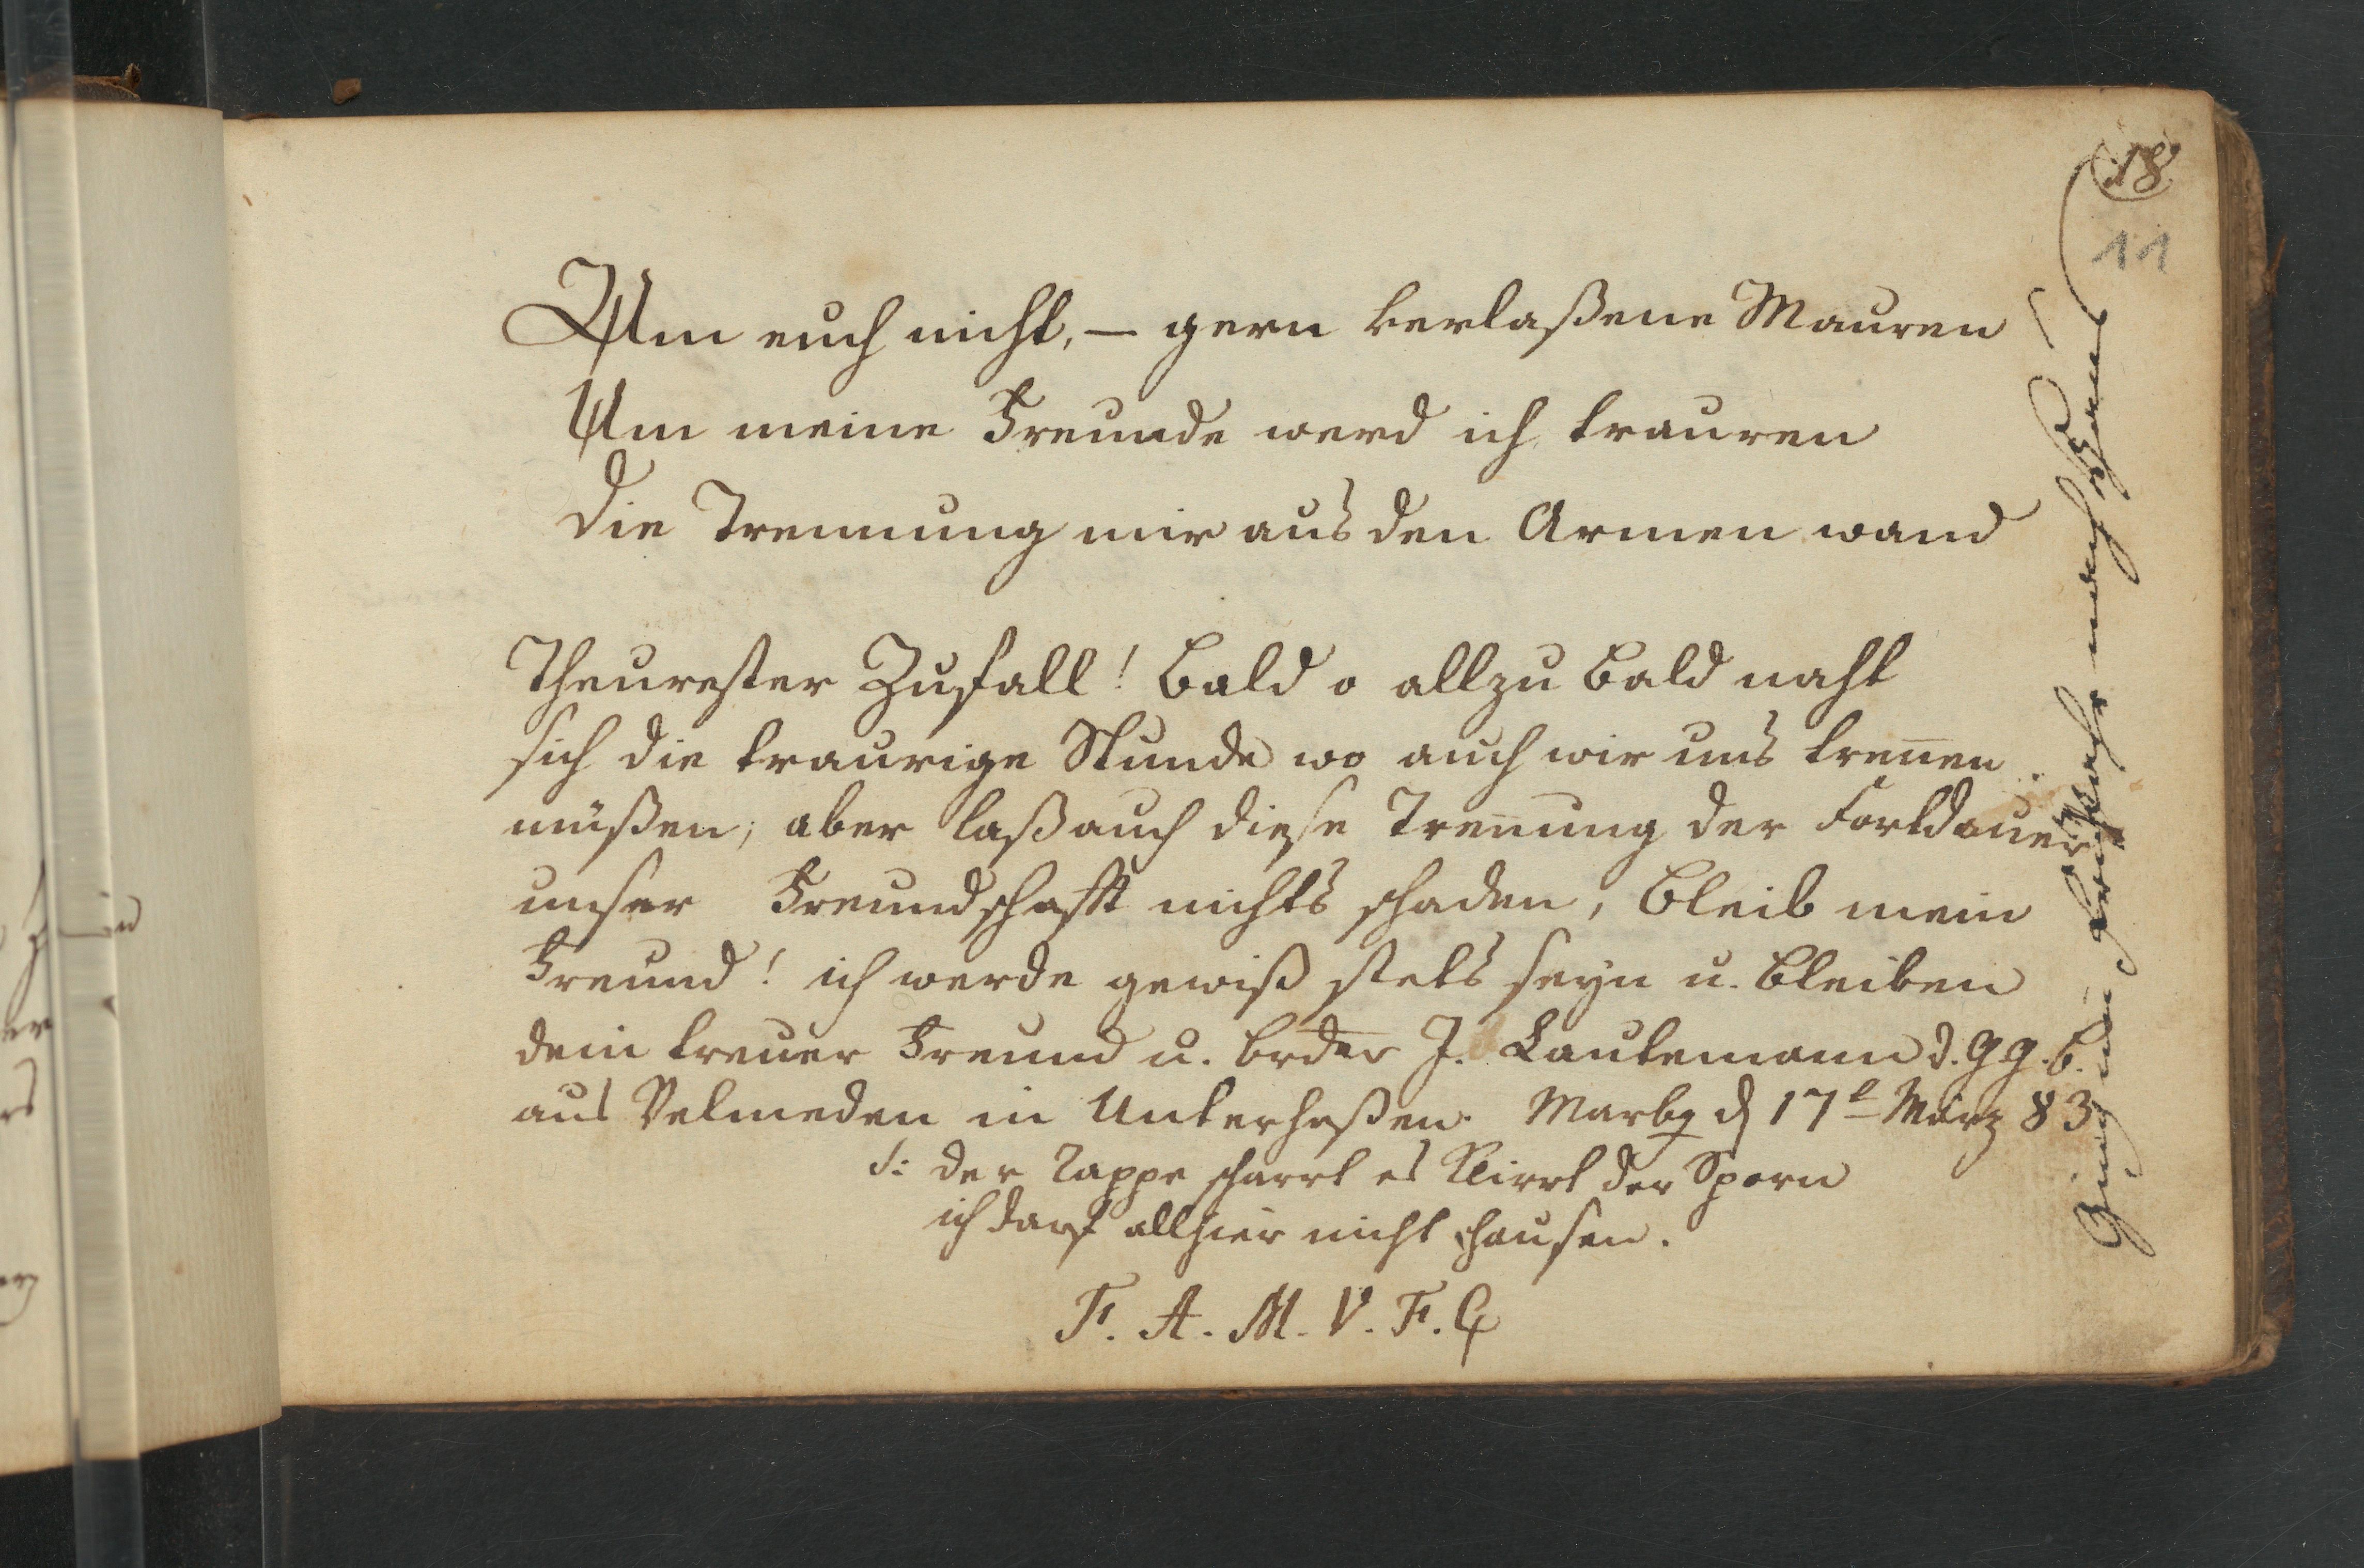 18
11
Um euch nicht, – gern verlaßene Mauren
Um meine Freunde werd ich trauren
die Trennung mir aus den Armen wand
Theurester Zufall! bald o allzu bald naht
sich die traurige Stunde wo auch wir uns treñen
müßen; aber laß auch diese Treñung der Fortdauer
unser Freundschafft nichts schaden, bleib mein
Freund! ich werde gewiß stets seyn u. bleiben
dein treuer Freund u. brder J. Lautemann d. G G. b.
aus Velmeden in Unterheßen. Marbg d 17t März 83
S: der Rappe scharrt es klirrt der Sporn
ich darf allhier nicht hausen.
F. A. M. V. F. C
ging im nach